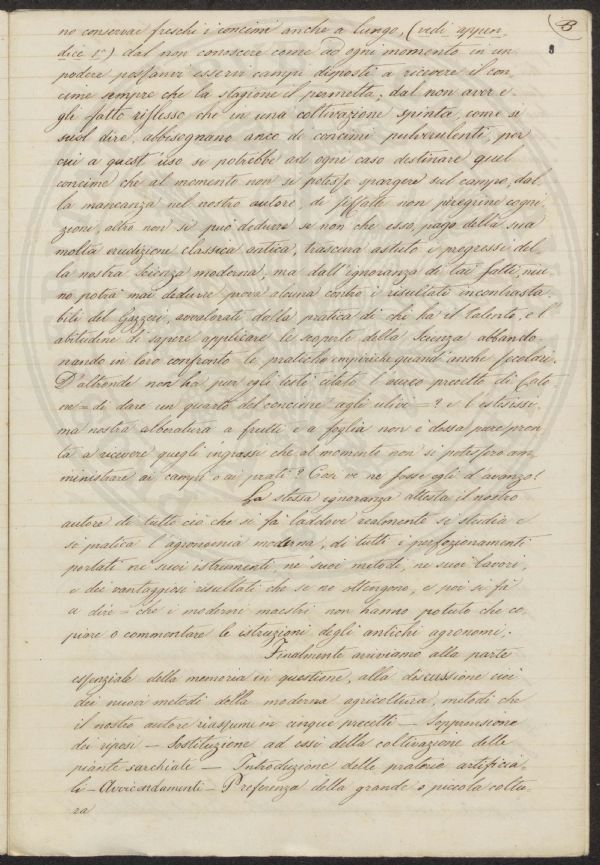 B
8
no conservar freschi i concimi anche a lungo, (vedi appen,
dice 1ª) dal non conoscere come ad ogni momento in un
podere possanvi esservi campi disposti a ricevere il con,
cime sempre che la stagione il permetta; dal non aver e,
gli fatto riflesso che in una coltivazione spinta, come si
suol dire, abbisognano anco di concimi pulverulenti, per
cui a quest'uso si potrebbe ad ogni caso destinare quel
concime che al momento non si potesse spargere sul campo, dal,
la mancanza nel nostro autore, di siffatte non peregrine cogni,
zioni, altro non si può dedurre se non che esso, pago della sua
molta erudizione classica antica, trascura astuto i progressi del,
la nostra scienza moderna, ma dall'ignoranza di tai fatti, niu,
no potrà mai dedurre prova alcuna contro i risultati incontrasta,
bili del Gazzeri, avvalorati dalla pratica di chi ha il talento, e l'
abitudine di sapere applicare le scoperte della Scienza abbando,
nando in loro confronto le pratiche empiriche quand'anche secolari.
D'altronde non ha pur egli testè citato l'aureo precetto di Cato,
ne = di dare un quarto del concime agli ulivi = ? e l'estesissi,
ma nostra alberatura a frutti e a foglia non è dessa pure pron,
ta a ricevere quegli ingrassi che al momento non si potessero am,
ministrare ai campi o ai prati? Così ve ne fosse egli d'avanzo!
La stessa ignoranza attesta il nostro
autore di tutto ciò che si fà laddove realmente si studia e
si pratica l'agronomia moderna, di tutti i perfezionamenti
portati ne' suoi istrumenti, ne' suoi metodi, ne' suoi lavori,
e dei vantaggiosi risultati che se ne ottengono, e poi si fà
a dire = che i moderni maestri non hanno potuto che co,
piare o commentare le istruzioni degli antichi agronomi.
Finalmente arriviamo alla parte
essenziale della memoria in questione, alla discussione cioè
dei nuovi metodi della moderna agricoltura, metodi che
il nostro autore riassume in cinque precetti — Soppressione
dei riposi — Sostituzione ad essi della coltivazione delle
piante sarchiate — Introduzione delle praterie artificia,
li — Avvicendamenti — Preferenza della grande o piccola coltu,
ra